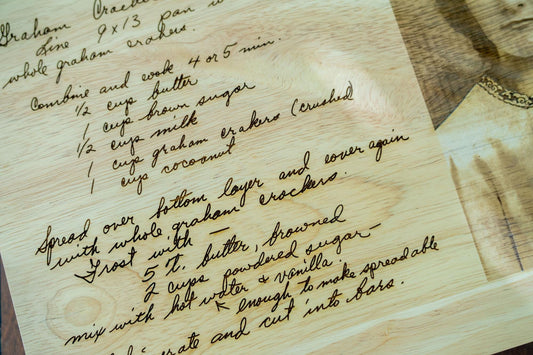 Graham Cracker
Line 9x13 pan
whole graham crakers.
Combine and cook 4 or 5 min.
1/2 cup butter
1 cup brown sugar
1/2 cup milk
1 cup graham crakers (crushed)
1 cup cocoanut
Spread over bottom layer and cover again
with whole graham crackers.
Frost with —
5 T. butter, browned
2 cups powdered sugar —
mix with hot water & vanilla!
↖ enough to make spreadable
and cut into bars.